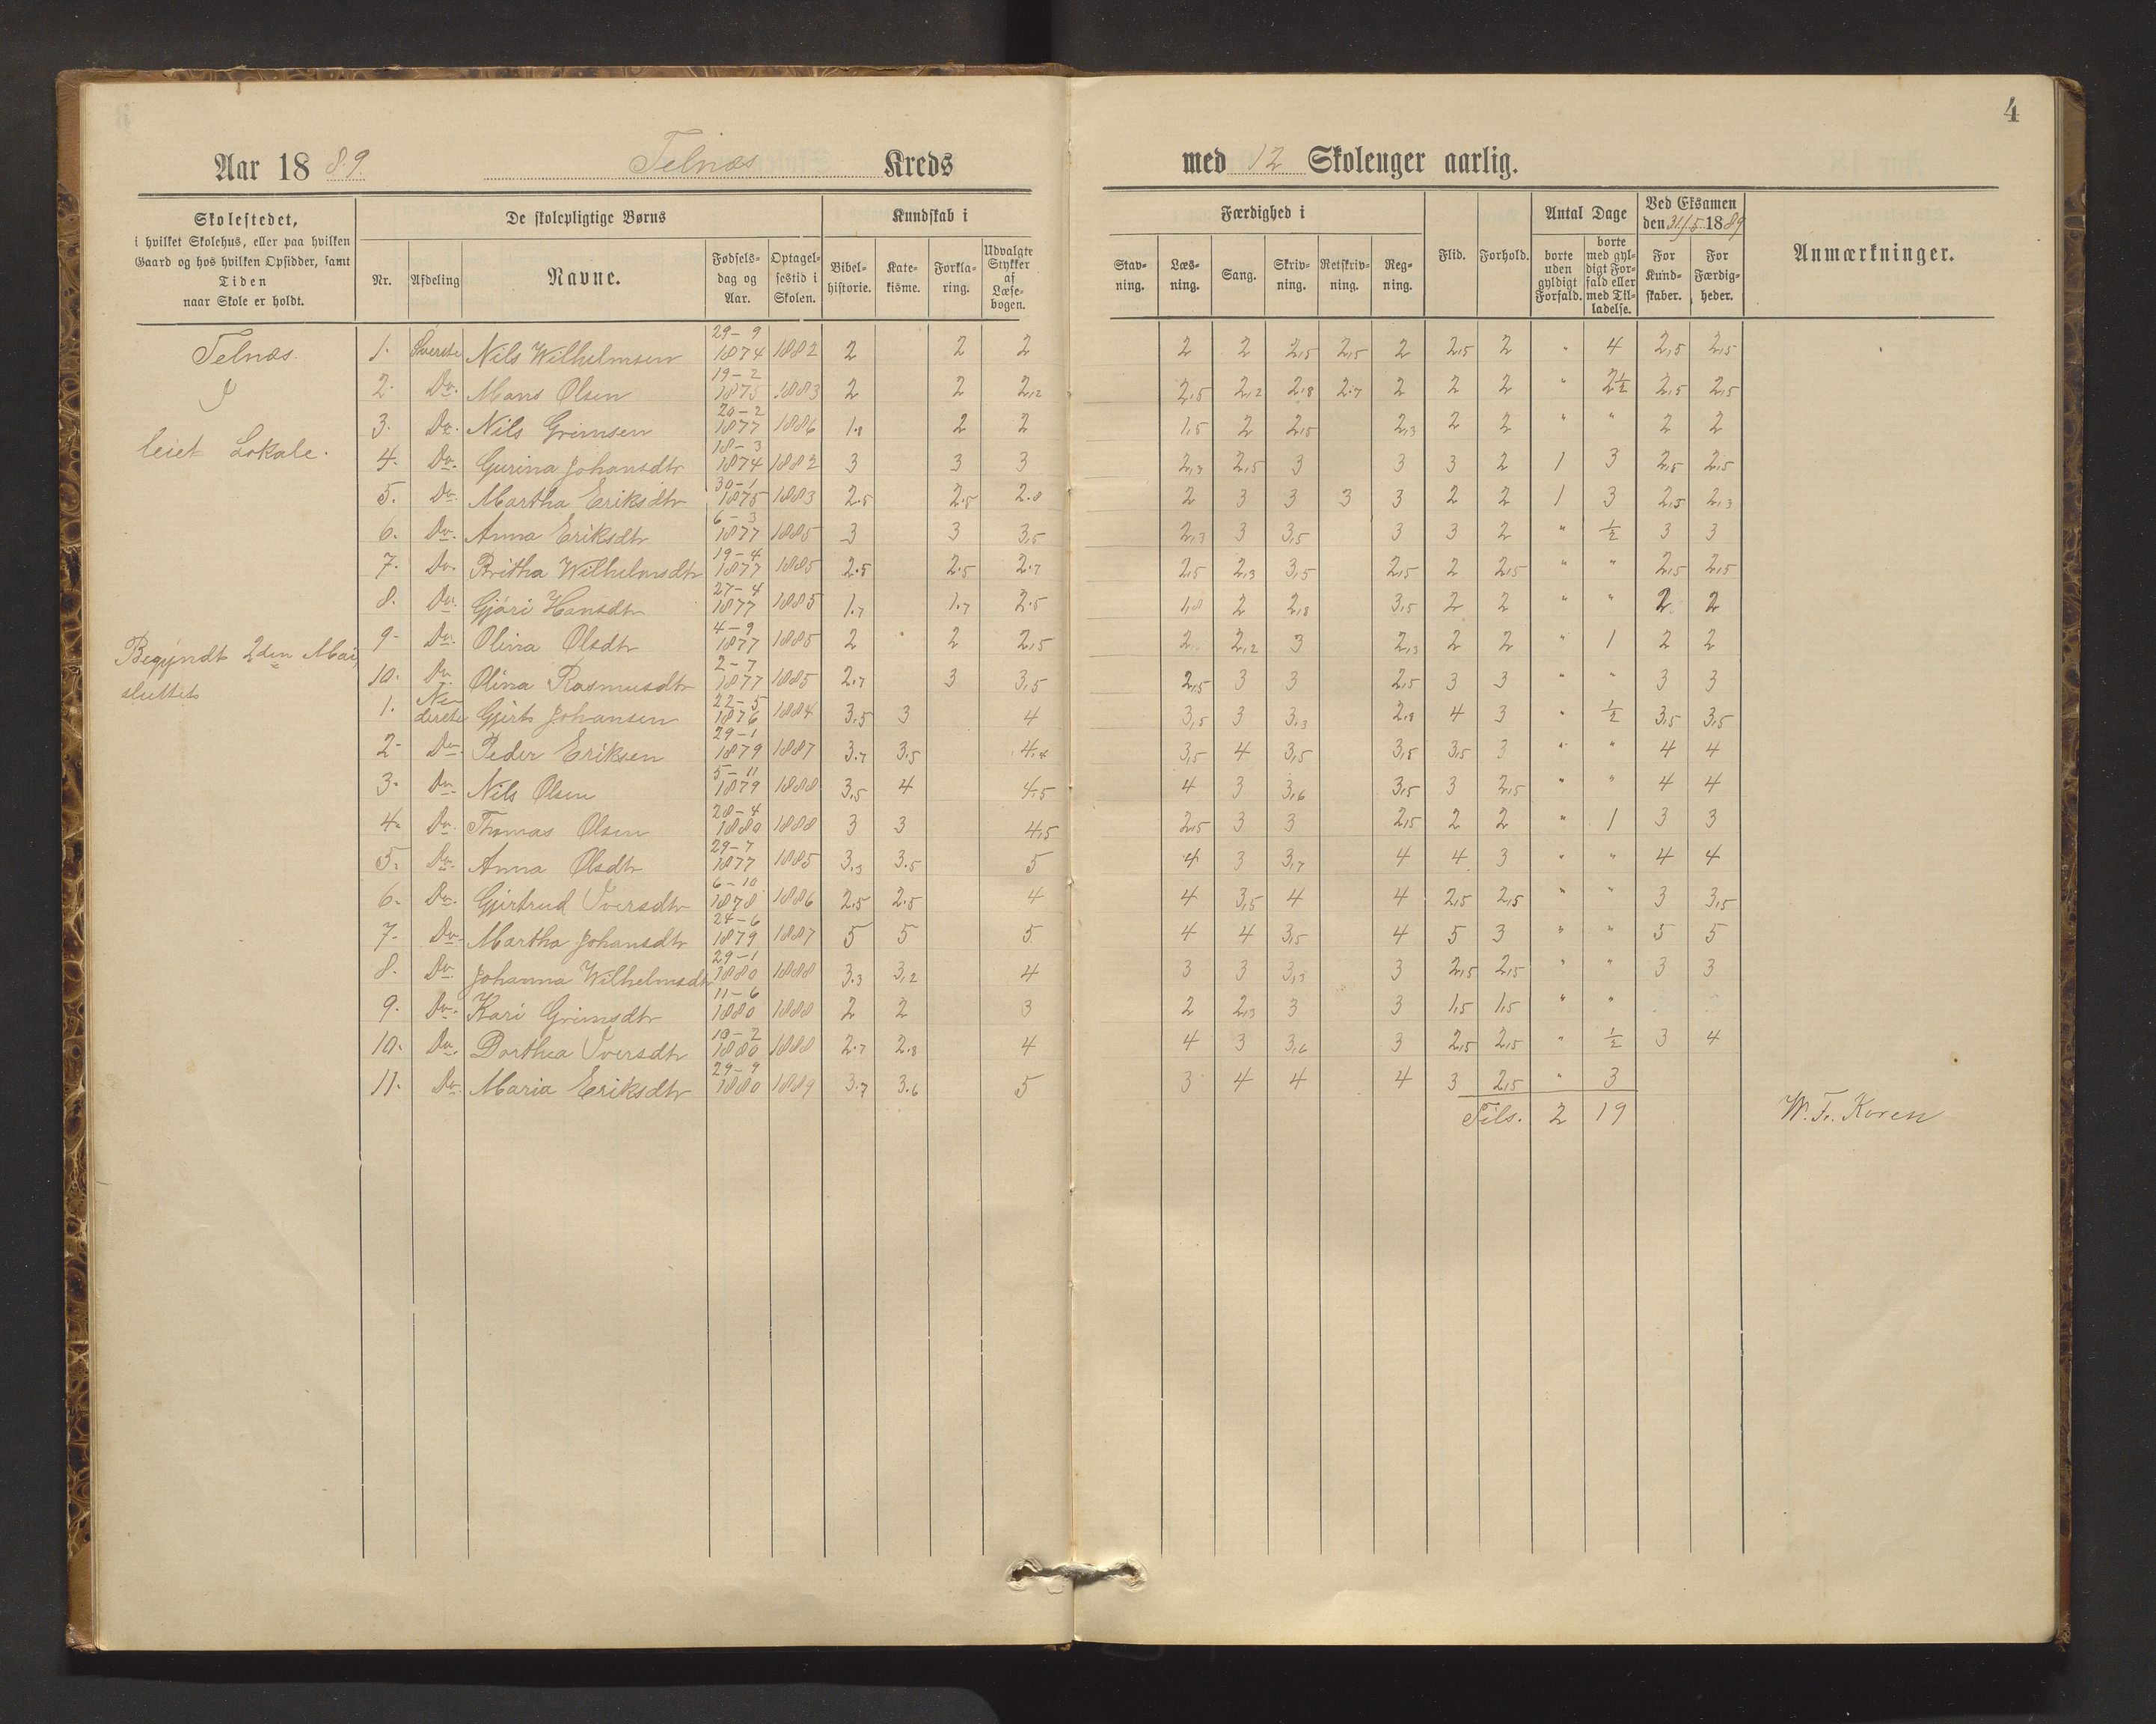 4
Aar 1889. Telnæs Kreds med 12 Skoleuger aarlig.
Skolestedet, i hvilket Skolehus, eller paa hvilken Gaard og hos hvilken Opsidder, samt Tiden naar Skole er holdt.
De skolepligtige Børns
Nr. Afdeling Navne. Fødselsdag og Aar. Optagelsestid i Skolen.
Kundskab i
Bibelhistorie. Katekisme. Forklaring. Udvalgte Stykker af Læsebogen.
Færdighed i
Stavning. Læsning. Sang. Skrivning. Retskrivning. Regning.
Flid. Forhold.
Antal Dage
borte uden gyldigt Forfald. borte med gyldigt Forfald eller med Tilladelse.
Ved Eksamen den 31/5 1889
For Kundskaber. For Færdigheder.
Anmærkninger.
Telnæs
I
leiet Lokale.
Begyndt 2den Mai,
sluttet
1. Øverste Nils Wilhelmsen 29-9 1874 1882 2 2 2 2 2 2,5 2,5 2 2,5 2 " 4 2,5 2,5
2. Do. Mons Olsen 19-2 1875 1883 2 2 2,2 2,5 2,2 2,8 2.7 2 2 2 " 2½ 2,5 2,5
3. Do. Nils Grimsen 20-2 1877 1886 1.8 2 2 1,5 2 2,5 2,3 2 2 " " 2 2
4. Do. Gurina Johansdtr 18-3 1874 1882 3 3 3 2,3 2,5 3 3 3 2 1 3 2,5 2,5
5. Do. Martha Eriksdtr 30-1 1875 1883 2.5 2.5 2.8 2 3 3 3 3 2 2 1 3 2,5 2,3
6. Do. Anna Eriksdtr 6-3 1877 1885 3 3 3,5 2,3 3 3,5 3 3 2 " ½ 3 3
7. Do. Britha Wilhelmsdtr 19-4 1877 1885 2.5 2.5 2.7 2,5 2,3 3,5 2,5 2 2,5 " " 2,5 2,5
8. Do. Gjøri Hansdtr 27-4 1877 1885 1.7 1.7 2.5 1,8 2 2,8 3,5 2 2 " " 2 2
9. Do. Olina Olsdtr 4-9 1877 1885 2 2 2,5 2 2,2 3 2,3 2 2 " 1 2 2
10. Do. Olina Rasmusdtr 2-7 1877 1885 2.7 3 3,5 2,5 3 3 2,5 3 3 " " 3 3
1. Nederste Gjert Johansen 22-5 1876 1884 3,5 3 4 3,5 3 3,3 2,8 4 3 " ½ 3,5 3,5
2. Do. Peder Eriksen 29-1 1879 1887 3.7 3.5 4.4 3,5 4 3,5 3,5 3,5 3 " " 4 4
3. Do. Nils Olsen 5-11 1879 1888 3,5 4 4.5 4 3 3,6 3,5 3 2,5 " " 4 4
4. Do. Thomas Olsen 28-4 1880 1888 3 3 4,5 2,5 3 3 2,5 2 2 " 1 3 3
5. Do. Anna Olsdtr 29-7 1877 1885 3.3 3.5 5 4 3 3,7 4 4 3 " " 4 4
6. Do. Gjertrud Iversdtr 6-10 1878 1886 2.5 2.5 4 4 3,5 4 4 2,5 2,5 " " 3 3,5
7. Do. Martha Johansdtr 24-6 1879 1887 5 5 5 4 4 3,5 4 5 3 " " 5 5
8. Do. Johanna Wilhelmsdtr 29-1 1880 1888 3.3 3,2 4 3 3 3,3 3 2,5 2,5 " " 3 3
9. Do. Kari Grimsdtr 11-6 1880 1888 2 2 3 2 2,3 3 3 1,5 1,5 " "
10. Do. Dorthea Iversdtr 10-2 1880 1888 2.7 2.8 4 4 3 3,6 3 2,5 2,5 " ½ 3 4
11. Do. Maria Eriksdtr 29-9 1880 1889 3.7 3.6 5 3 4 4 4 3 2,5 " 3
Tils. 2 19
W. Fr. Koren